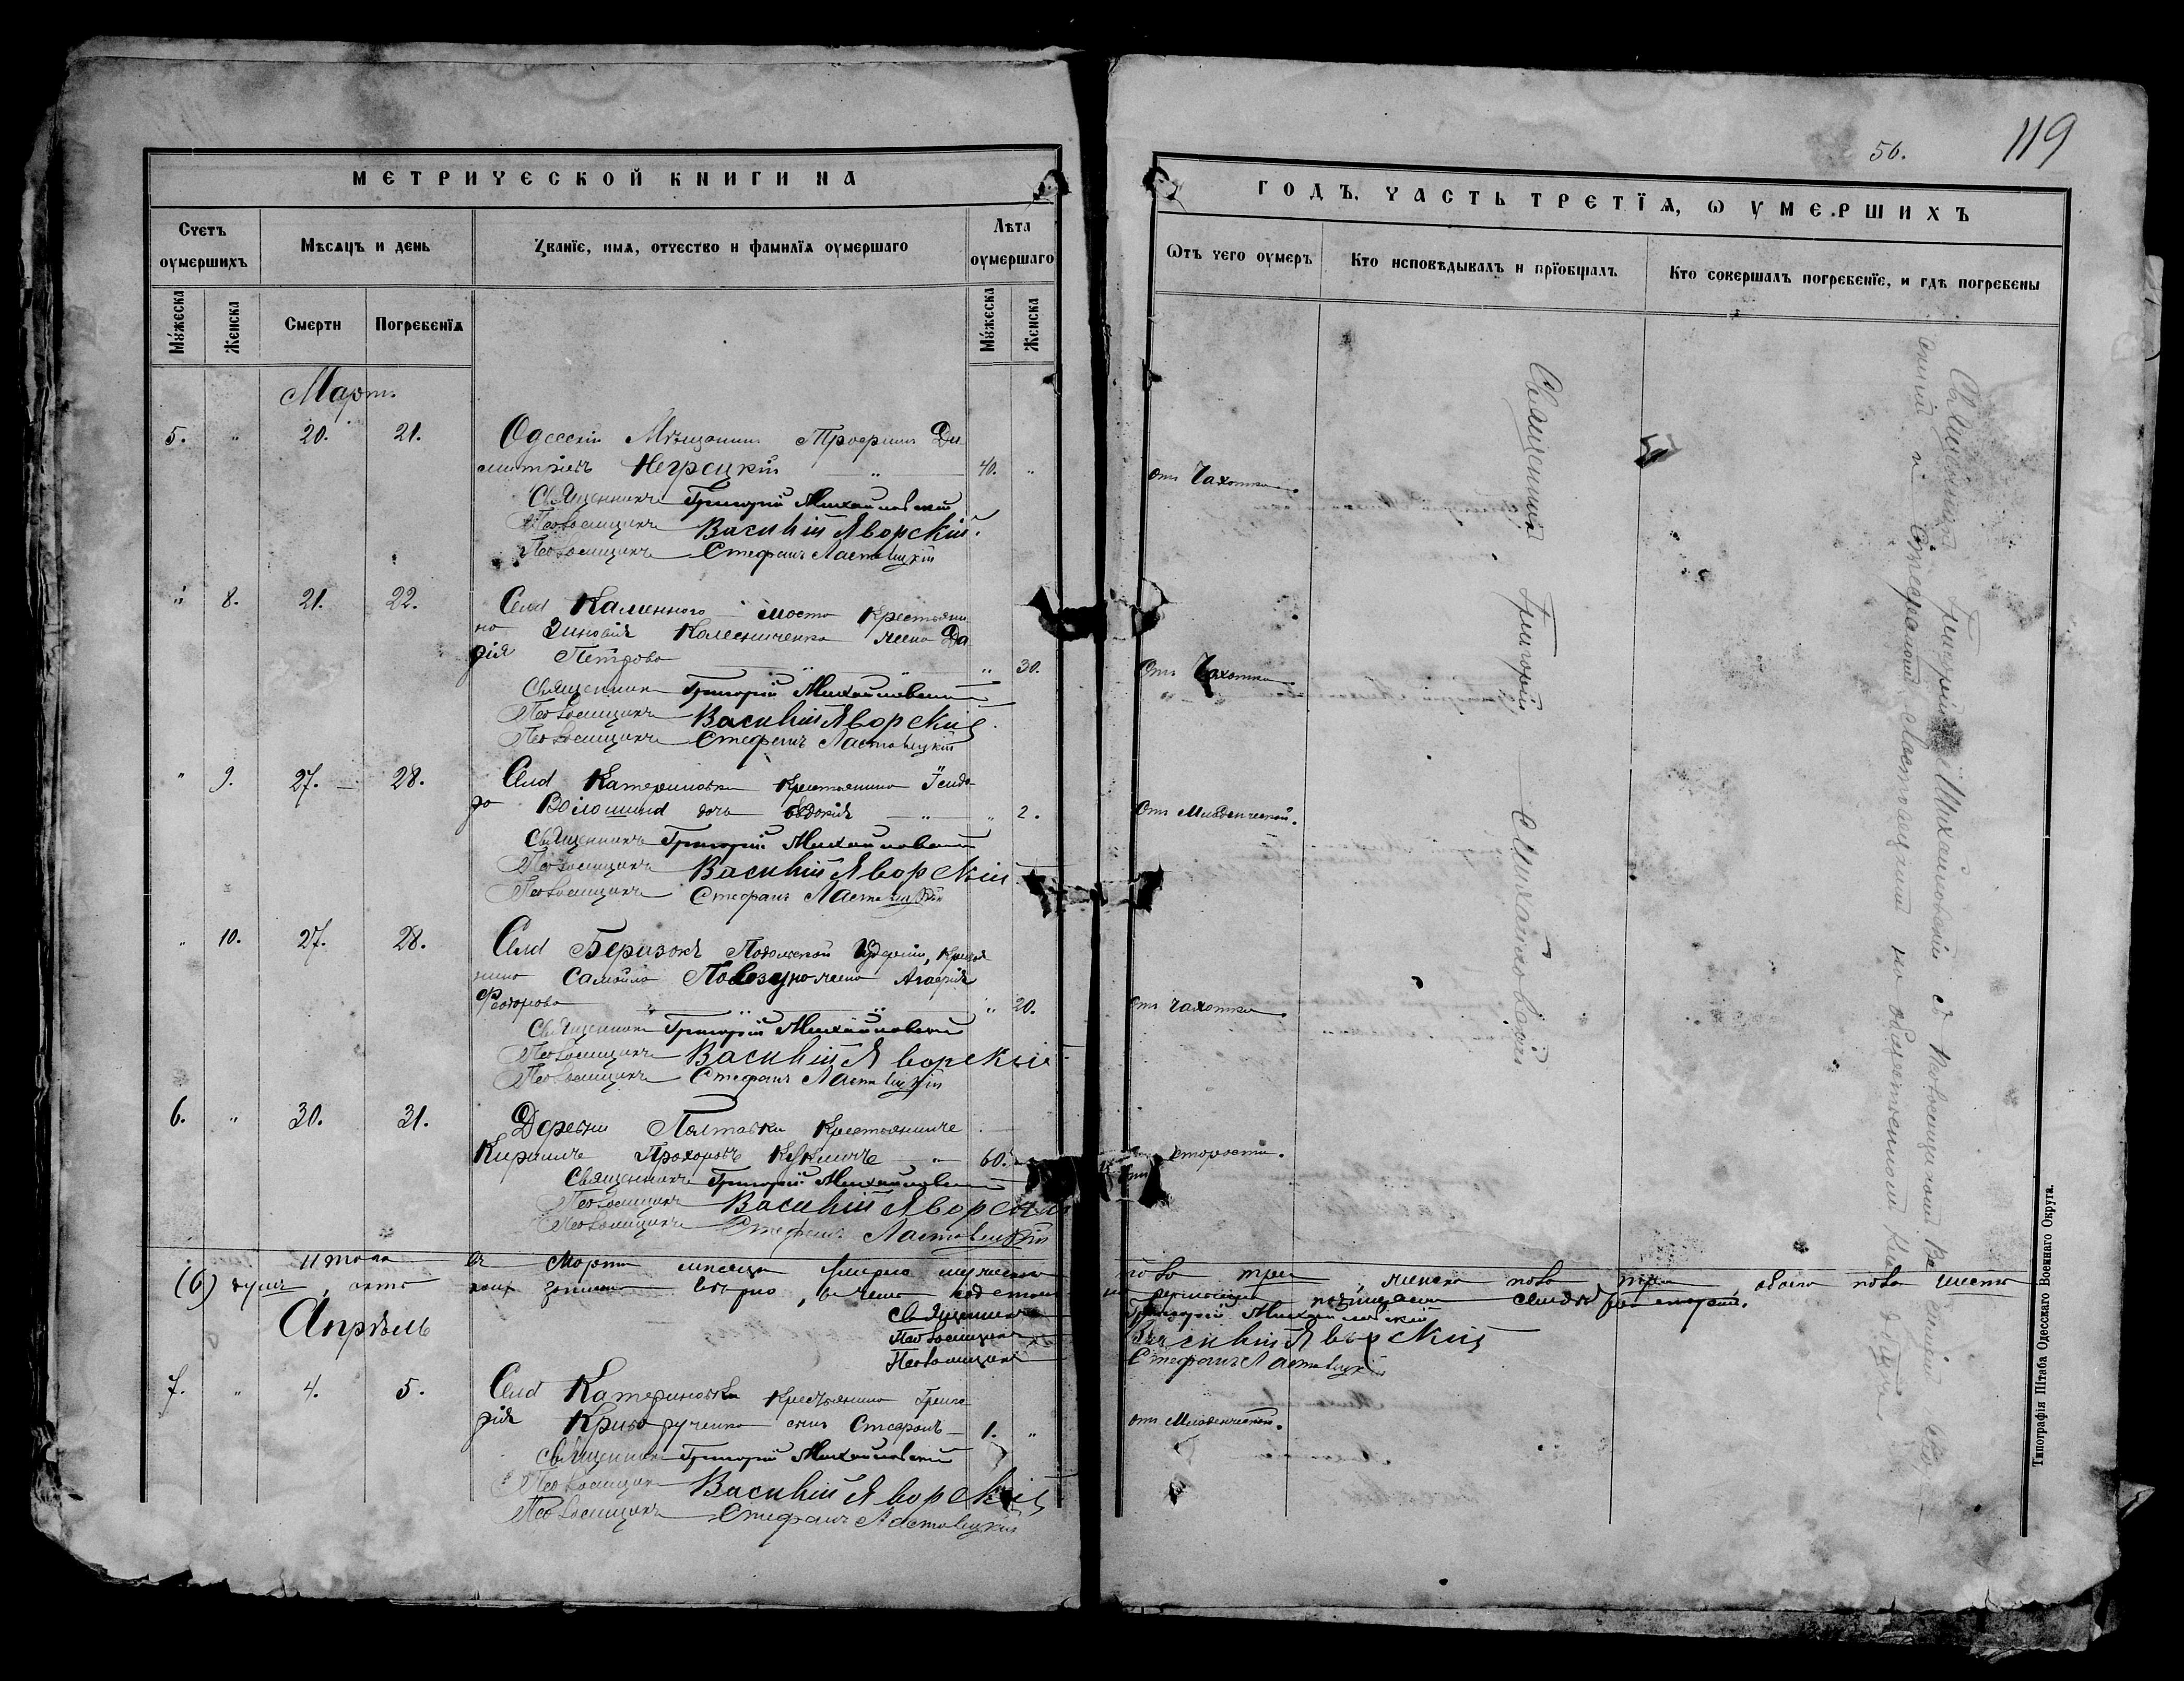 119
56.
МЕТРИЧЕСКОЙ КНИГИ НА
ГОДЪ, ЧАСТЬ ТРЕТІЯ, Ѡ УМЕРШИХЪ
Счетъ оумершихъ
Мѣсяцъ и день
Званіе, имя, отчество и фамилія оумершаго
Лѣта оумершаго
Ѿтъ чего оумеръ
Кто исповѣдывалъ и пріобщалъ
Кто совершалъ погребеніе, и гдѣ погребены
Мꙋжеска
Женска
Смерти
Погребенія
Мꙋжеска
Женска
Мартъ
5. " 20. 21.
Одесскій Мѣщанинъ Трофимъ Ди
митріевъ Негрецкій — " — 40. "
отъ Чахотки.
Священникъ Григорій Михайловскій
Псаломщикъ Василій Яворскій.
Псаломщикъ Стефанъ Ластовецкій
" 8. 21. 22.
Села Каменнаго моста крестьяни
на Зиновія Колесниченка жена Да
рія Петрова " 30.
Отъ Чахотки
Священникъ Григорій Михайловскій
Псаломщикъ Василій Яворскій
Псаломщикъ Стефанъ Ластовецкій
" 9. 27. 28.
Села Катериновки крестьянина Ісидо
ра Волошина дочь Евдокія — " — " 2.
Отъ Младенческой.
Священникъ Григорій Михайловскій
Псаломщикъ Василій Яворскій
Псаломщикъ Стефанъ Ластовецкій
" 10. 27. 28.
Села Подольской Губерніи, крестья
нина Самойла жена Агафія
Феодорова " 20.
отъ чахотки
Священникъ Григорій Михайловскій
Псаломщикъ Василій Яворскій
Псаломщикъ Стефанъ Ластовецкій
6. " 30. 31.
Деревни Полтавки Крестьянинъ
Кириллъ Прохоровъ — " — 60. "
отъ старости.
Священникъ Григорій Михайловскій
Псаломщикъ Василій Яворскій
Псаломщикъ Стефанъ Ластовецкій
Итого въ Мартѣ мѣсяцѣ умерло мужеска пола три, женска пола три, обоего пола шесть
(6) душъ, записано вѣрно, въ чемъ подписомъ
Священникъ Григорій Михайловскій
Псаломщикъ Василій Яворскій
Псаломщикъ Стефанъ Ластовецкій
Апрѣль
7. " 4. 5.
Села Катериновки Крестьянина Григо
рія сынъ Стефанъ — 1. "
отъ Младенческой.
Священникъ Григорій Михайловскій
Псаломщикъ Василій Яворскій
Псаломщикъ Стефанъ Ластовецкій
Священникъ Григорій Михайловскій
Священникъ Григорій Михайловскій съ Псаломщиками Ва
силіемъ Яворскимъ и Стефаномъ Ластовецкимъ на общественномъ кладбищѣ
Типографія Штаба Одесскаго Военнаго Округа.